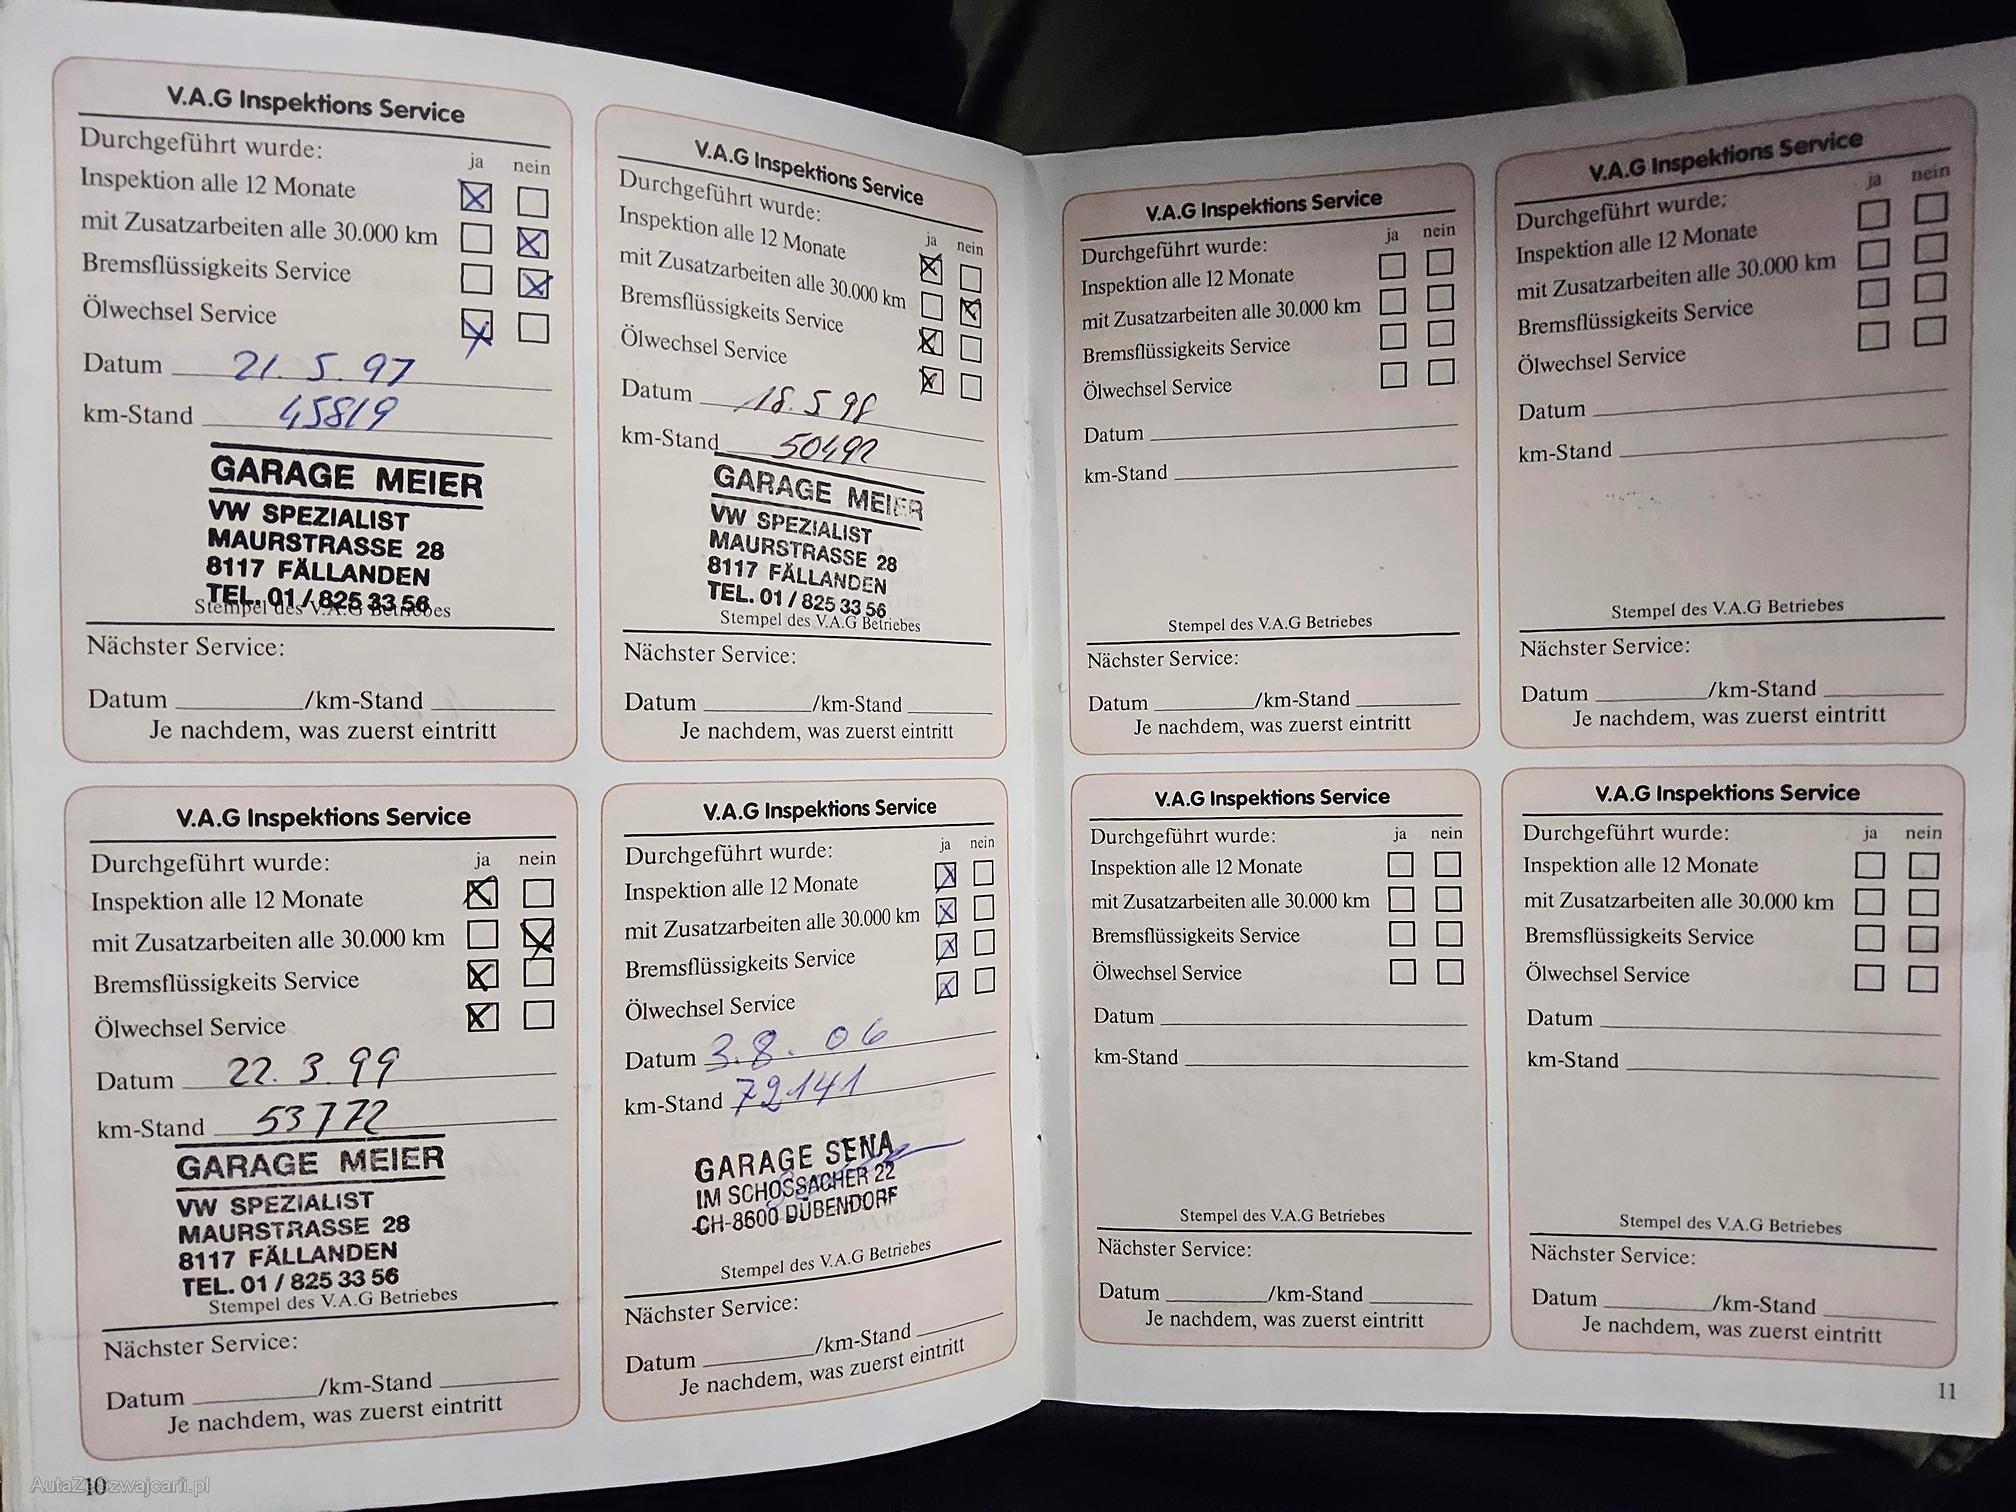 V.A.G Inspektions Service
Durchgeführt wurde:
ja nein
Inspektion alle 12 Monate
mit Zusatzarbeiten alle 30.000 km
Bremsflüssigkeits Service
Ölwechsel Service
Datum 21. 5. 97
km-Stand 45819
GARAGE MEIER
VW SPEZIALIST
MAURSTRASSE 28
8117 FÄLLANDEN
TEL. 01 / 825 33 56
Stempel des V.A.G Betriebes
Nächster Service:
Datum /km-Stand
Je nachdem, was zuerst eintritt
V.A.G Inspektions Service
Durchgeführt wurde:
ja nein
Inspektion alle 12 Monate
mit Zusatzarbeiten alle 30.000 km
Bremsflüssigkeits Service
Ölwechsel Service
Datum 18. 5 98
km-Stand 50492
GARAGE MEIER
VW SPEZIALIST
MAURSTRASSE 28
8117 FÄLLANDEN
TEL. 01 / 825 33 56
Stempel des V.A.G Betriebes
Nächster Service:
Datum /km-Stand
Je nachdem, was zuerst eintritt
V.A.G Inspektions Service
Durchgeführt wurde:
ja nein
Inspektion alle 12 Monate
mit Zusatzarbeiten alle 30.000 km
Bremsflüssigkeits Service
Ölwechsel Service
Datum 22. 3. 99
km-Stand 53772
GARAGE MEIER
VW SPEZIALIST
MAURSTRASSE 28
8117 FÄLLANDEN
TEL. 01 / 825 33 56
Stempel des V.A.G Betriebes
Nächster Service:
Datum /km-Stand
Je nachdem, was zuerst eintritt
V.A.G Inspektions Service
Durchgeführt wurde:
ja nein
Inspektion alle 12 Monate
mit Zusatzarbeiten alle 30.000 km
Bremsflüssigkeits Service
Ölwechsel Service
Datum 3. 8. 06
km-Stand 72141
GARAGE SENA
IM SCHOSSACHER 22
CH-8600 DÜBENDORF
Stempel des V.A.G Betriebes
Nächster Service:
Datum /km-Stand
Je nachdem, was zuerst eintritt
10
V.A.G Inspektions Service
Durchgeführt wurde:
ja nein
Inspektion alle 12 Monate
mit Zusatzarbeiten alle 30.000 km
Bremsflüssigkeits Service
Ölwechsel Service
Datum
km-Stand
Stempel des V.A.G Betriebes
Nächster Service:
Datum /km-Stand
Je nachdem, was zuerst eintritt
V.A.G Inspektions Service
Durchgeführt wurde:
ja nein
Inspektion alle 12 Monate
mit Zusatzarbeiten alle 30.000 km
Bremsflüssigkeits Service
Ölwechsel Service
Datum
km-Stand
Stempel des V.A.G Betriebes
Nächster Service:
Datum /km-Stand
Je nachdem, was zuerst eintritt
V.A.G Inspektions Service
Durchgeführt wurde:
ja nein
Inspektion alle 12 Monate
mit Zusatzarbeiten alle 30.000 km
Bremsflüssigkeits Service
Ölwechsel Service
Datum
km-Stand
Stempel des V.A.G Betriebes
Nächster Service:
Datum /km-Stand
Je nachdem, was zuerst eintritt
V.A.G Inspektions Service
Durchgeführt wurde:
ja nein
Inspektion alle 12 Monate
mit Zusatzarbeiten alle 30.000 km
Bremsflüssigkeits Service
Ölwechsel Service
Datum
km-Stand
Stempel des V.A.G Betriebes
Nächster Service:
Datum /km-Stand
Je nachdem, was zuerst eintritt
11